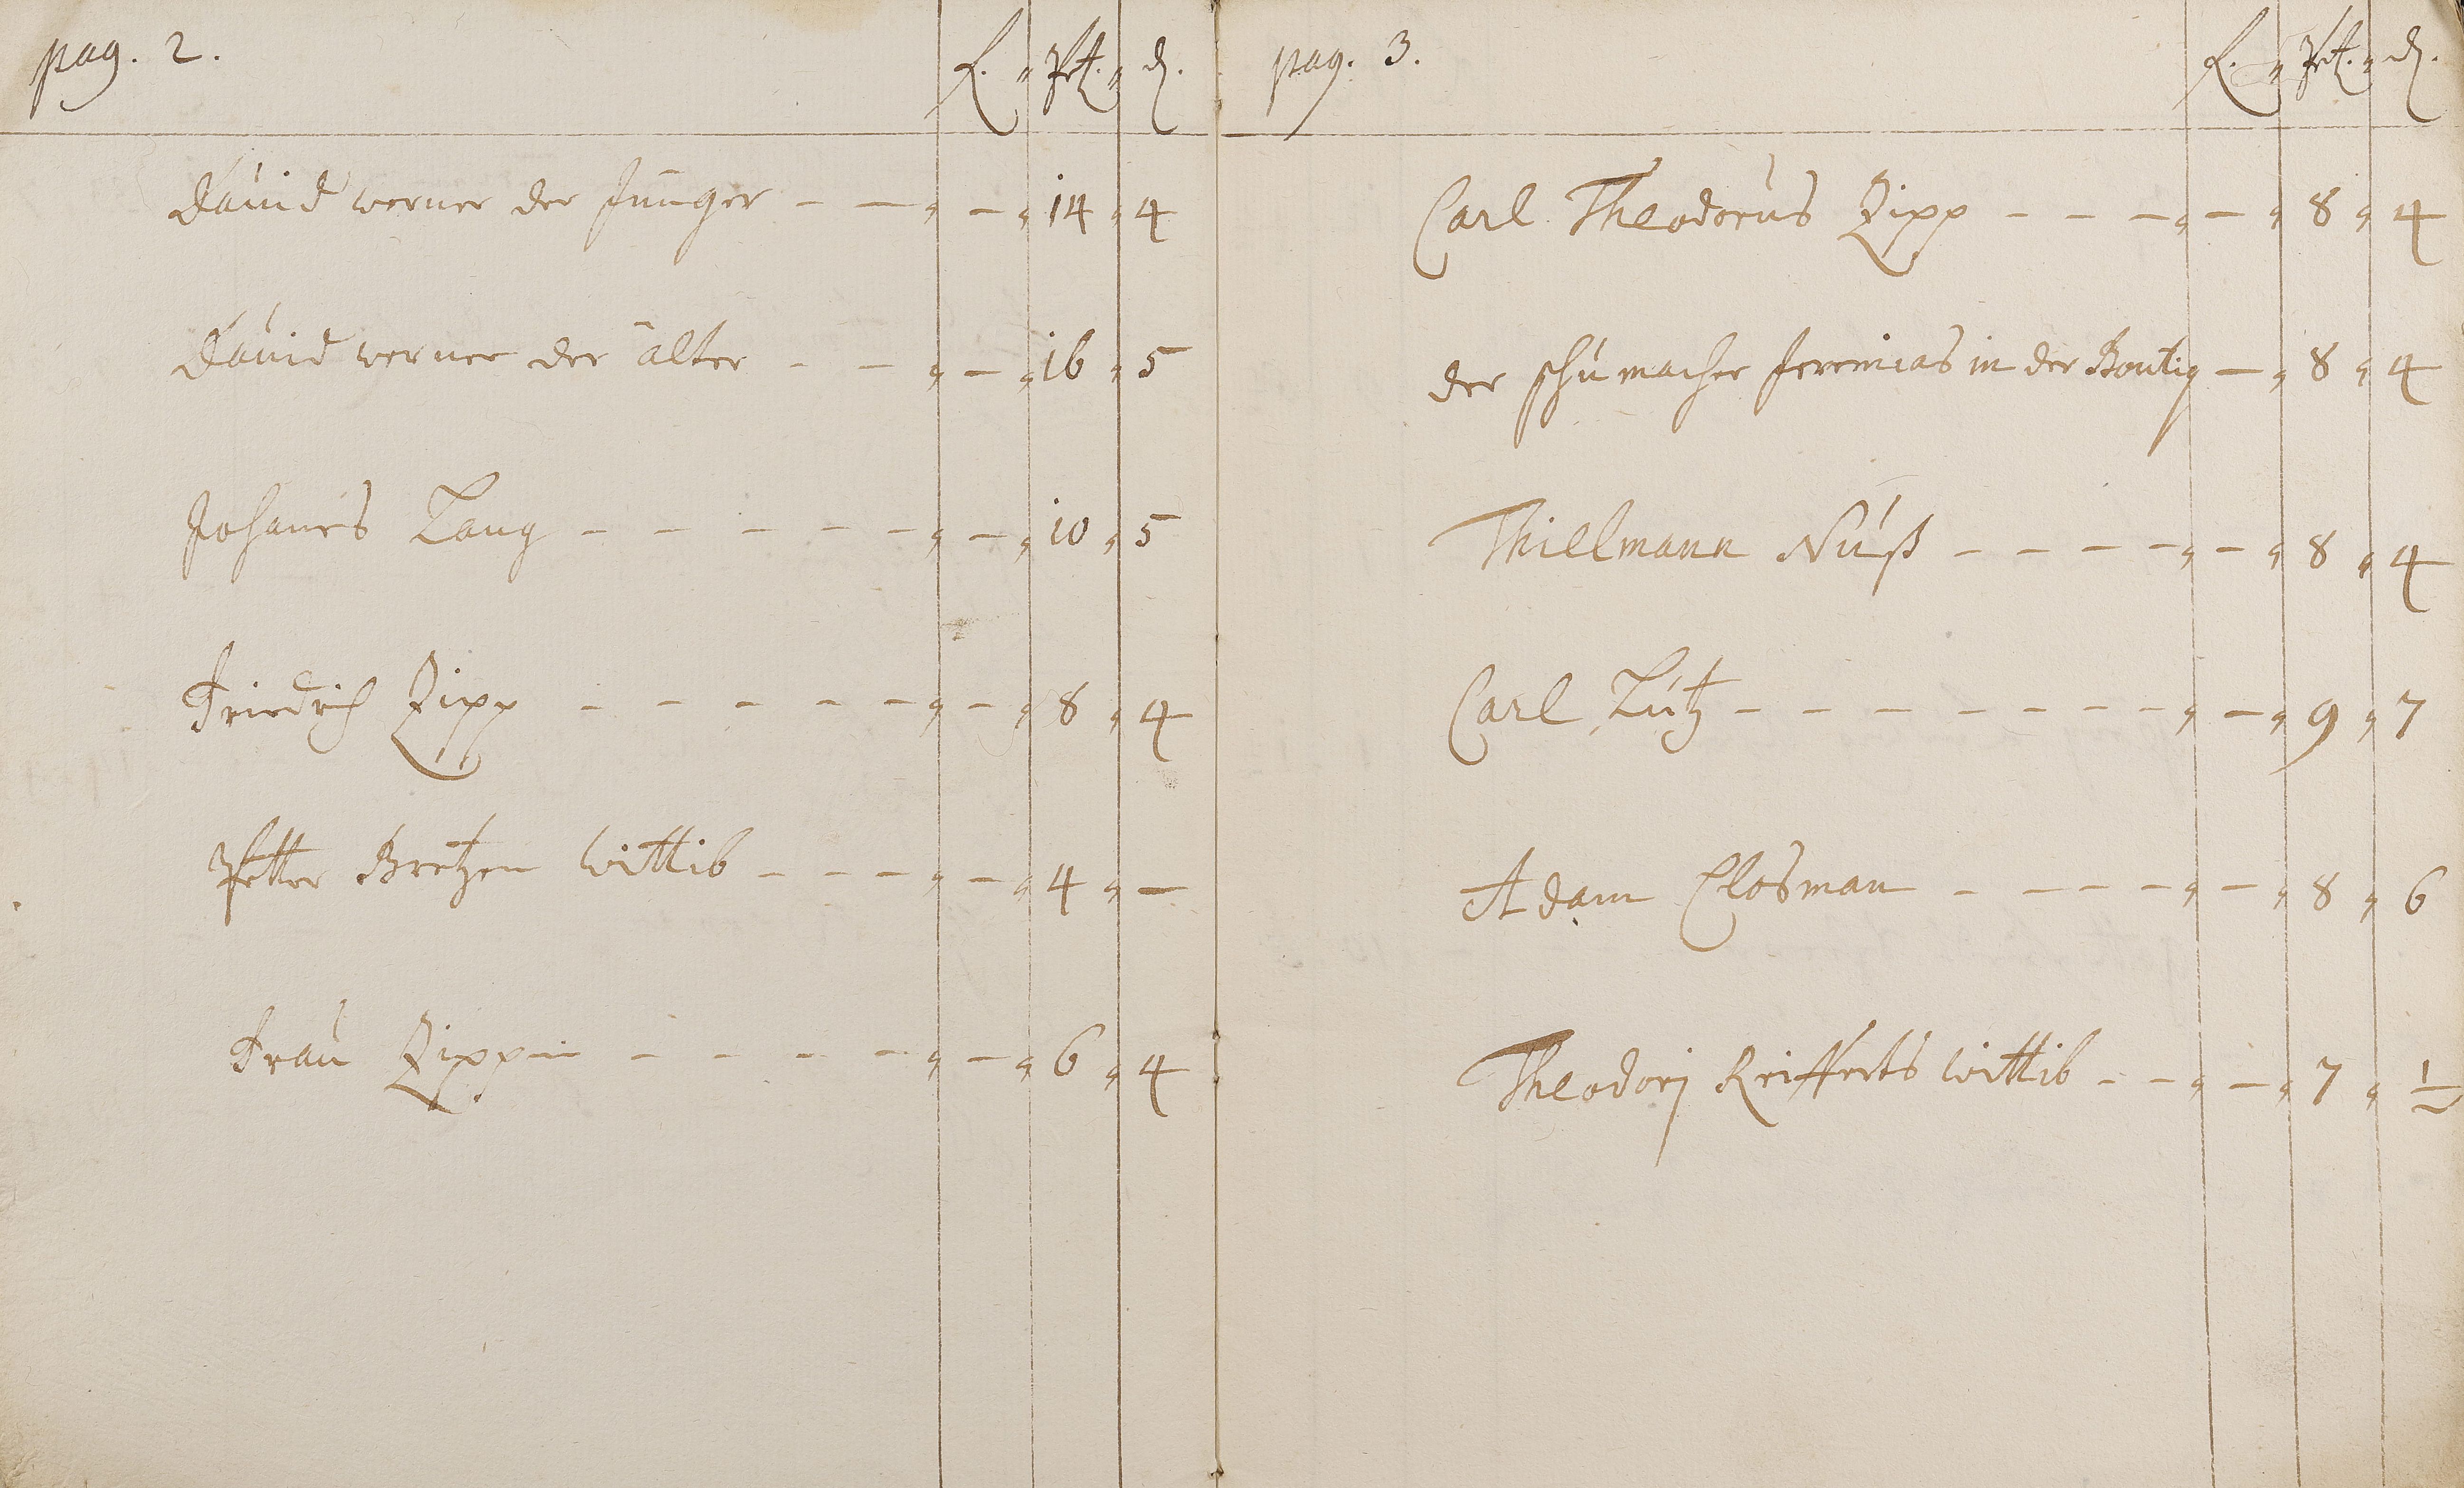 pag. 2. f. " Pet. " d.
David werner der Junger - - " - " 14 " 4
David werner der älter - - " - " 16 " 5
Johanes Lang - - - - - " - " 10 " 5
Friedrich Zipp - - - - - " - " 8 " 4
Petter Bretzen wittib - - - " - " 4 " -
Frau Zippin - - - - " - " 6 " 4
pag. 3. f. " Pet. " d.
Carl Theodorus Zipp - - - " - " 8 " 4
der schumacher Jeremias in der Boutig - " 8 " 4
Thillmann Nuß - - - - " - " 8 " 4
Carl Lutz - - - - - - - " - " 9 " 7
Adam Closman - - - - " - " 8 " 6
Theodorj Reifferts wittib - - " - " 7 " ½